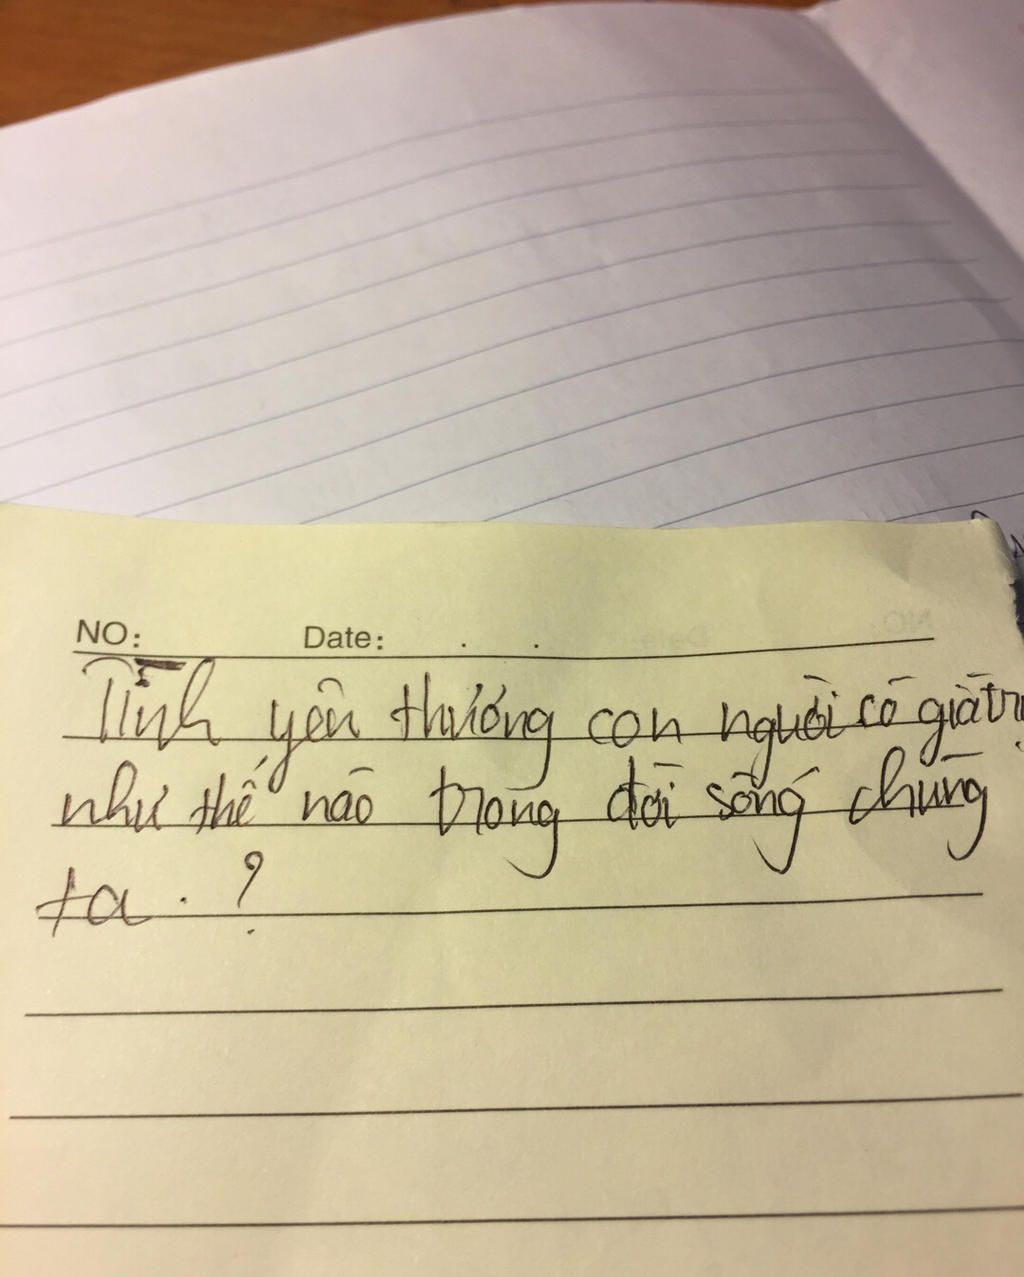 NO: Date: . .
Tình yêu thương con người có giá trị
như thế nào trong đời sống chúng
ta . ?